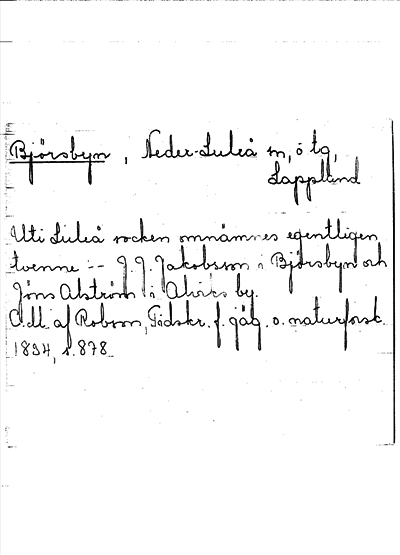 Björsbyn, Neder-Luleå sn, ö tg,
Lappland
Uti Luleå socken omnämnes egentligen
tvenne :-- J. J. Jakobsson i Björsbyn och
Jöns Alström i Alviks by.
C.M. af Robson, Tidskr. f. jäg. o. naturforsk.
1834, s. 878